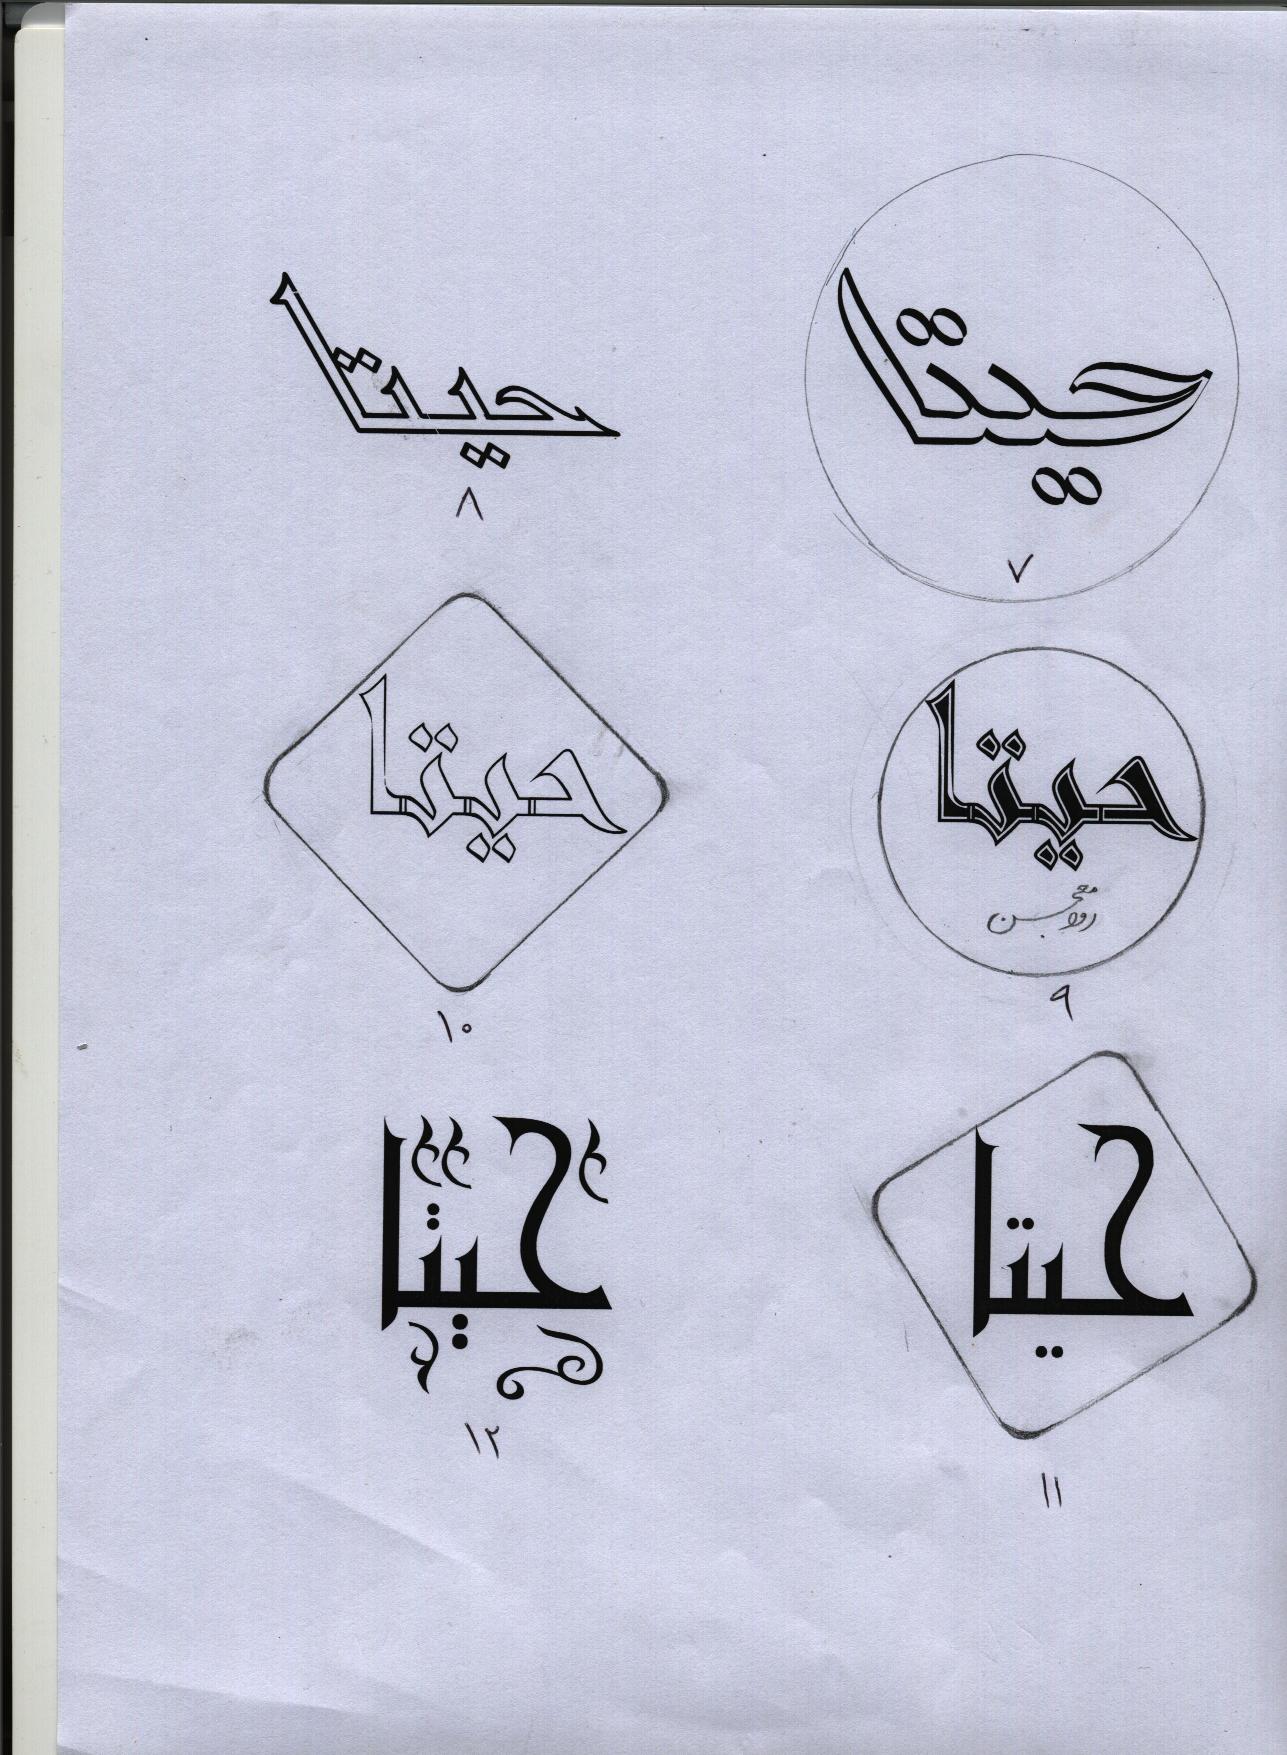 حيتا
٧
حيتا
٨
حيتا
٩
حيتا
١٠
حيتا
١١
حيتا
١٢